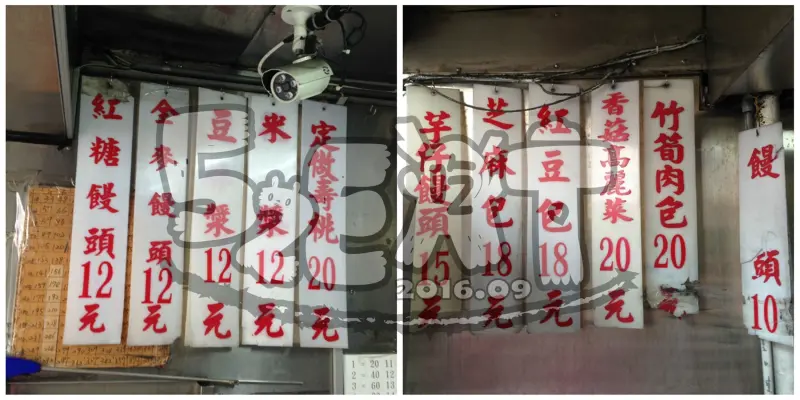 紅糖饅頭12元
全麥饅頭12元
豆漿12元
米漿12元
定做壽桃20元
芋仔饅頭15元
芝麻包18元
紅豆包18元
香菇高麗菜20元
竹筍肉包20元
饅頭10
2016.09
1 = 20 11
2 = 40 12
3 = 60 13